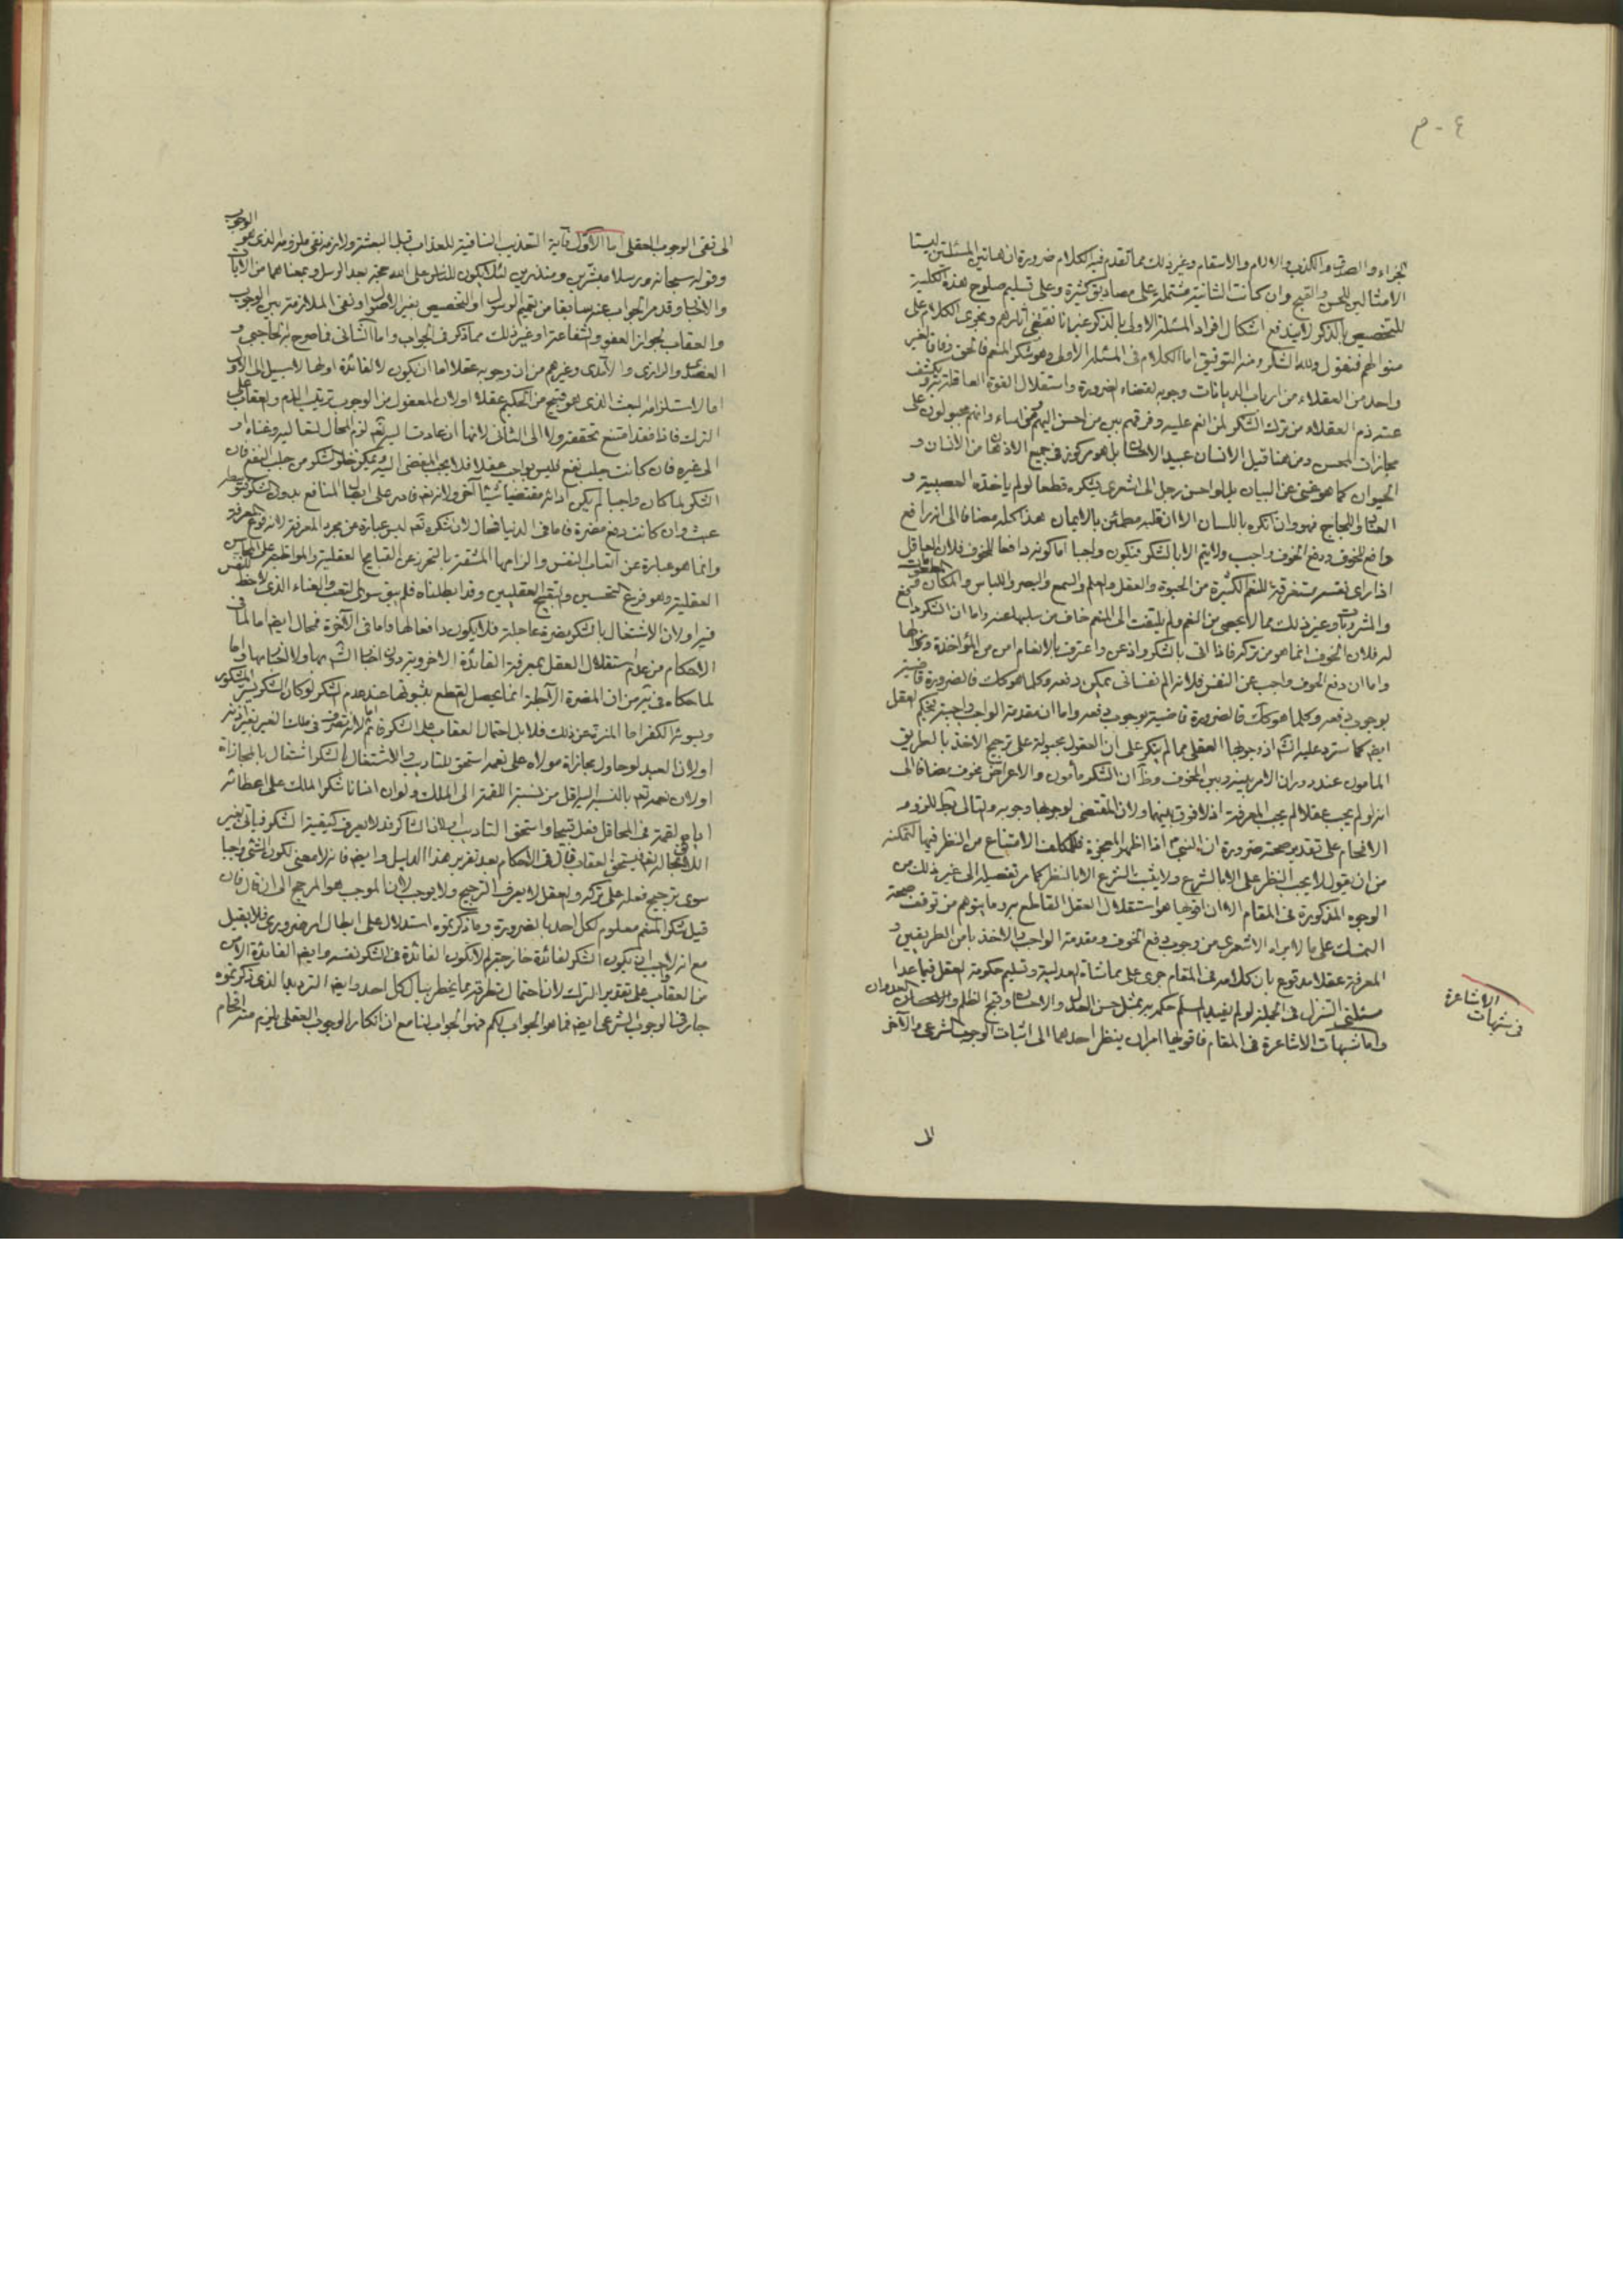 ٤ - م
الجزاء والصدق والكذب والالام والاسقام وغير ذلك مما تقدم فيه الكلام ضرورة ان هاتين المسئلتين ليستا
الا مثالين للحسن والقبح وان كانت الثانية مشتملة على مصاديق كثيرة وعلى تسليم صلوح هذه الكلية
للتخصيص بالذكر لا يندفع اشكال افراد المسئلة الاولى بالذكر غير انا نقتفي اثارهم ونجري الكلام على
منوالهم فنقول ولله الشكر ومنه التوفيق اما الكلام في المسئلة الاولى وهو شكر المنعم فالحق وفاقا لغير
واحد من العقلاء من ارباب الديانات وجوبه لقضاء الضرورة واستقلال القوة العاقلة يكشف
عنه ذم العقلاء من ترك الشكر لمن انعم عليه وفرقهم بين من احسن اليهم ومن اساء وانهم مجبولون على
مجازات المحسن ومن هنا قيل الانسان عبيد الاحسان بل هو مركوز في جميع الاذهان من الانسان و
الحيوان كما هو غني عن البيان بل لو احسن رجل الى اشعري شكره قطعا لو لم ياخذه العصبية و
العناد واللجاج فهو وان انكره باللسان الا ان قلبه مطمئن بالايمان هذا كله مضافا الى انه رافع
دافع للخوف ودفع الخوف واجب ولا يتم الا بالشكر فيكون واجبا اما كونه دافعا للخوف فلان العاقل
اذا راى نفسه مستغرقة للنعم الكثيرة من الحيوة والعقل والعلم والسمع والبصر واللباس والمكان
والمشروبات وغير ذلك مما لا يحصى من النعم ولم يلتفت الى المنعم خاف من سلبها عنه واما ان الشكر دافع
له فلان الخوف انما هو من تركه فاذا اتى بالشكر واذعن واعترف بالانعام امن من المؤاخذة ونحوها
واما ان دفع الخوف واجب عن النفس فلانه الم نفساني يمكن دفعه وكلما هو كك فالضرورة قاضية
بوجوب دفعه وكلما هو كك فالضرورة قاضية بوجوب دفعه واما ان مقدمة الواجب واجبة بحكم العقل
ايضا كما سترد عليه انش اذ وجوبها العقلي مما لم ينكر على ان العقول مجبولة على ترجيح الاخذ بالطريق
المامون عند دوران الامر بينه وبين المخوف وظ ان الشكر مأمون والاعراض مخوف مضافا الى
انه لو لم يجب عقلا لم يجب المعرفة اذ لا فرق بينهما ولان المقتضي لوجوبها وجوبه والتالي بط للزوم
الافحام على تقدير صحته ضرورة ان النبي اذا اظهر المعجزة فللمكلف الامتناع من النظر فيها لتمكنه
من ان يقول لا يجب النظر علي الا بالشرع ولا يثبت الشرع الا بالنظر كما مر تفصيله الى غير ذلك من
الوجوه المذكورة في المقام الا ان اقويها هو استقلال العقل القاطع به وما يتوهم من توقف صحة
التمسك على ما لا يراه الاشعري من وجوب دفع الخوف ومقدمة الواجب والاخذ بامن الطريقين و
المعرفة عقلا مدفوع بان كلامه في المقام جرى على مماشاة العدلية وتسليم حكومة العقل فيما عدا
مسئلتي التنزل في الجملة لو لم نقل المسلم حكمه به بمثل حسن العدل والاحسان وقبح الظلم والعدوان
واما شبهات الاشاعرة في المقام فاقويها امران ينظر احدهما الى اثبات الوجوب الشرعي والاخر
في شبهات الاشاعرة
الى
الى نفي الوجوب العقلي اما الاول فاية التعذيب النافية للعذاب قبل البعثة ولازمه نفي ملزومه الذي هو الوجوب
وقوله سبحانه ورسلا مبشرين ومنذرين لئلا يكون للناس على الله حجة بعد الرسل وبمعناهما من الايات
والاخبار وقد مر الجواب عنه سابقا من تعميم الرسول او التخصيص بغير الاصول او نفي الملازمة بين الوجوب
والعقاب لجواز العفو والشفاعة او غير ذلك مما ذكر في الجواب واما الثاني فما صرح به الحاجبي و
العضدي والرازي والآمدي وغيرهم من ان وجوبه عقلا اما ان يكون لا لفائدة او لها لا سبيل الى الاول
اما لاستلزامه العبث الذي هو قبيح من الحكيم عقلا او لان المعقول من الوجوب ترتب الذم والعقاب على
الترك فاذا فقد امتنع تحققه ولا الى الثاني لانها ان عادت اليه تع لزم المحال لتعاليه وغناه او
الى غيره فان كانت جلب نفع فليس بواجب عقلا فلا يجب المفضي اليه ويمكن خلو الشكر من جلب النفع فان
الشكر لما كان واجبا لم يكن ادائه مقتضيا شيئا آخر ولانه تع قادر على ايصال المنافع بدون الشكر فتوسطه
عبث وان كانت دفع مضرة فاما في الدنيا فمحال لان شكره تع ليس عبارة عن مجرد المعرفة لانه فرع المعرفة
وانما هو عبارة عن اتعاب النفس والزامها المشقة بالتحرز عن القبايح العقلية والمواظبة على المحاسن
العقلية وهو فرع التحسين والتقبيح العقليين وقد ابطلناه فلم يبق سوى التعب والعناء الذي لا حظ للنفس
فيه او لان الاشتغال بالشكر مضرة عاجلة فلا يكون دافعا لها واما في الآخرة فمحال ايضا اما لما في
الاحكام من عدم استقلال العقل بمعرفة الفائدة الاخروية دون اخبار الشرع بها ولا اخبار بها واما
لما حكاه في ير من ان المضرة الآجلة انما يحصل القطع بثبوتها عند عدم الشكر لو كان الشكر يسر المشكور
ويسوئه الكفر اما المنزه عن ذلك فلا بل احتمال العقاب على الشكر قائم اما لانه تصرف في ملك الغير بغير اذنه
او لان العبد لو حاول مجازاة مولاه على نعمه استحق للتاديب والاشتغال بالشكر اشتغال بالمجازاة
او لان نعمه تع بالنسبة اليه اقل من نسبة اللقمة الى الملك ولو ان انسانا شكر الملك على اعطائه
اياه لقمة في المحافل فعل قبيحا واستحق التاديب او لان الشاكر قد لا يعرف كيفية الشكر فياتي بغير
اللايق بحاله تع فيستحق العقاب قال في الاحكام بعد تقرير هذا الدليل وايضا فانه لا معنى لكون الشئ واجبا
سوى ترجيح فعله على تركه والعقل لا يعرف الترجيح ولا يوجب لان الموجب هو المرجح الى ان قال فان
قيل شكر المنعم معلوم لكل احد بالضرورة وما ذكرتموه استدلال على ابطال امر ضروري فلا يقبل
مع انه لا يجب ان يكون الشكر لفائدة خارجة لم لا يكون الفائدة في الشكر نفسه وايضا الفائدة الامن
من العقاب على تقدير الترك لان احتمال تطرقه مما يخطر ببال كل احد وايضا الترديد الذي ذكرتموه
جار في الوجوب الشرعي ايضا فما هو الجواب لكم فهو الجواب لنا مع ان انكار الوجوب العقلي يلزم منه افحام